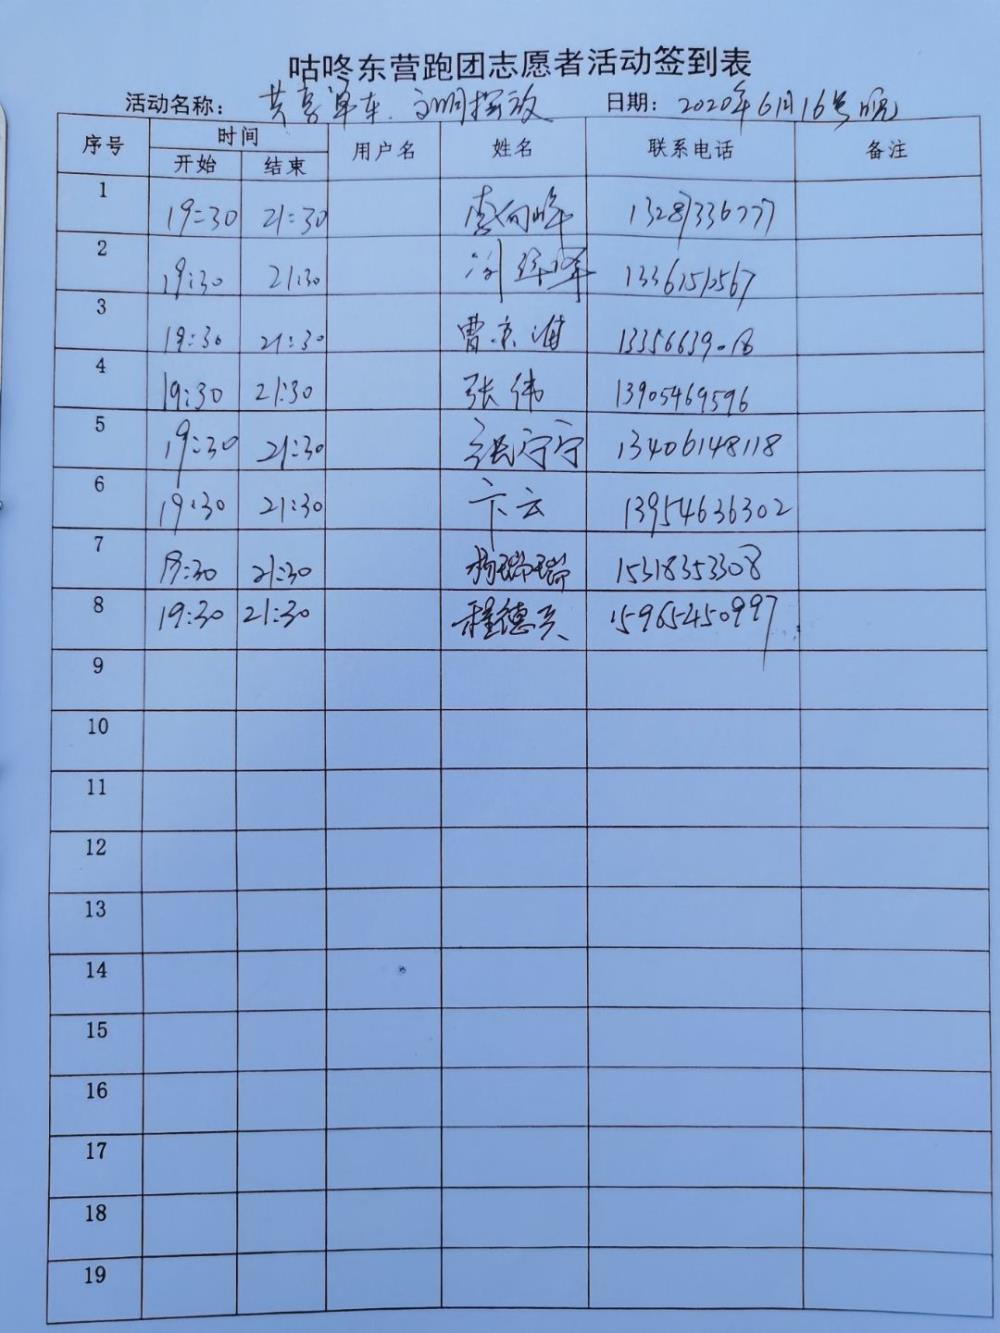 咕咚东营跑团志愿者活动签到表
活动名称： 共享单车 文明摆放 日期： 2020年6月16号晚
序号 时间 用户名 姓名 联系电话 备注
开始 结束
1 19:30 21:30 13287336777
2 19:30 21:30
3 19:30 21:30 曹京海
4 19:30 21:30 张伟 13905469596
5 19:30 21:30 张宁宁 13406148118
6 19:30 21:30 卞云 13954636302
7 19:30 21:30 杨瑞瑞 15318353308
8 19:30 21:30 15965450997
9
10
11
12
13
14
15
16
17
18
19